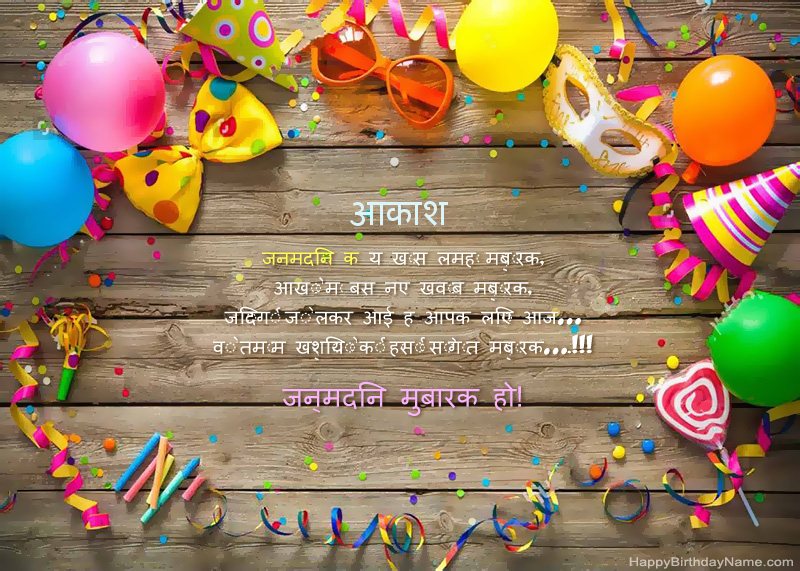 आकाश
जनमदिन क य खास लमह मबारक,
आखो म बस नए खवाब मबारक,
जिदगी जो लेकर आई ह आपक लिए आज...
वो तमाम खशियो की हसी सौगात मबारक...!!!
जन्मदिन मुबारक हो!
HappyBirthdayName.com